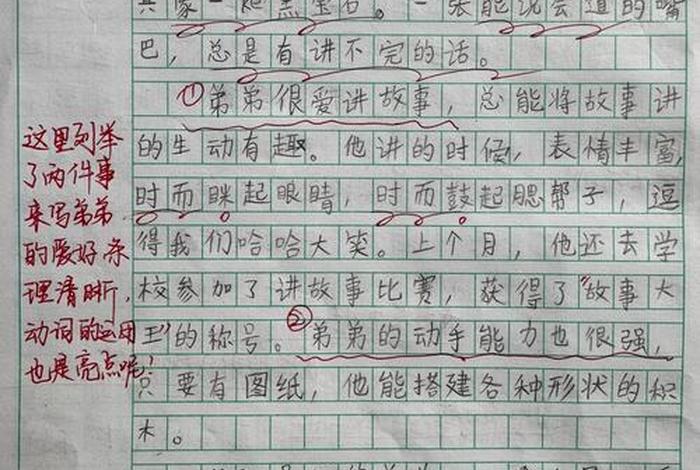 一张能说会道的嘴
巴，总是有讲不完的话。
①弟弟很爱讲故事，总能将故事讲
的生动有趣。他讲的时候，表情丰富，
时而眯起眼睛，时而鼓起腮帮子，逗
得我们哈哈大笑。上个月，他还去学
校参加了讲故事比赛，获得了“故事大
王”的称号。②弟弟的动手能力也很强，
只要有图纸，他能搭建各种形状的积
木。
这里列举
了两件事
来写弟弟
的爱好，条
理清晰，
动词的运用
也是亮点呢！